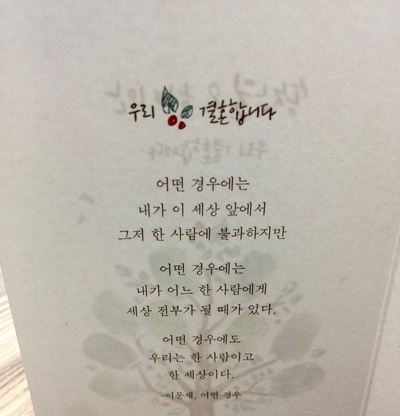 우리 결혼합니다
어떤 경우에는
내가 이 세상 앞에서
그저 한 사람에 불과하지만
어떤 경우에는
내가 어느 한 사람에게
세상 전부가 될 때가 있다.
어떤 경우에도
우리는 한 사람이고
한 세상이다.
-이문재, 어떤 경우